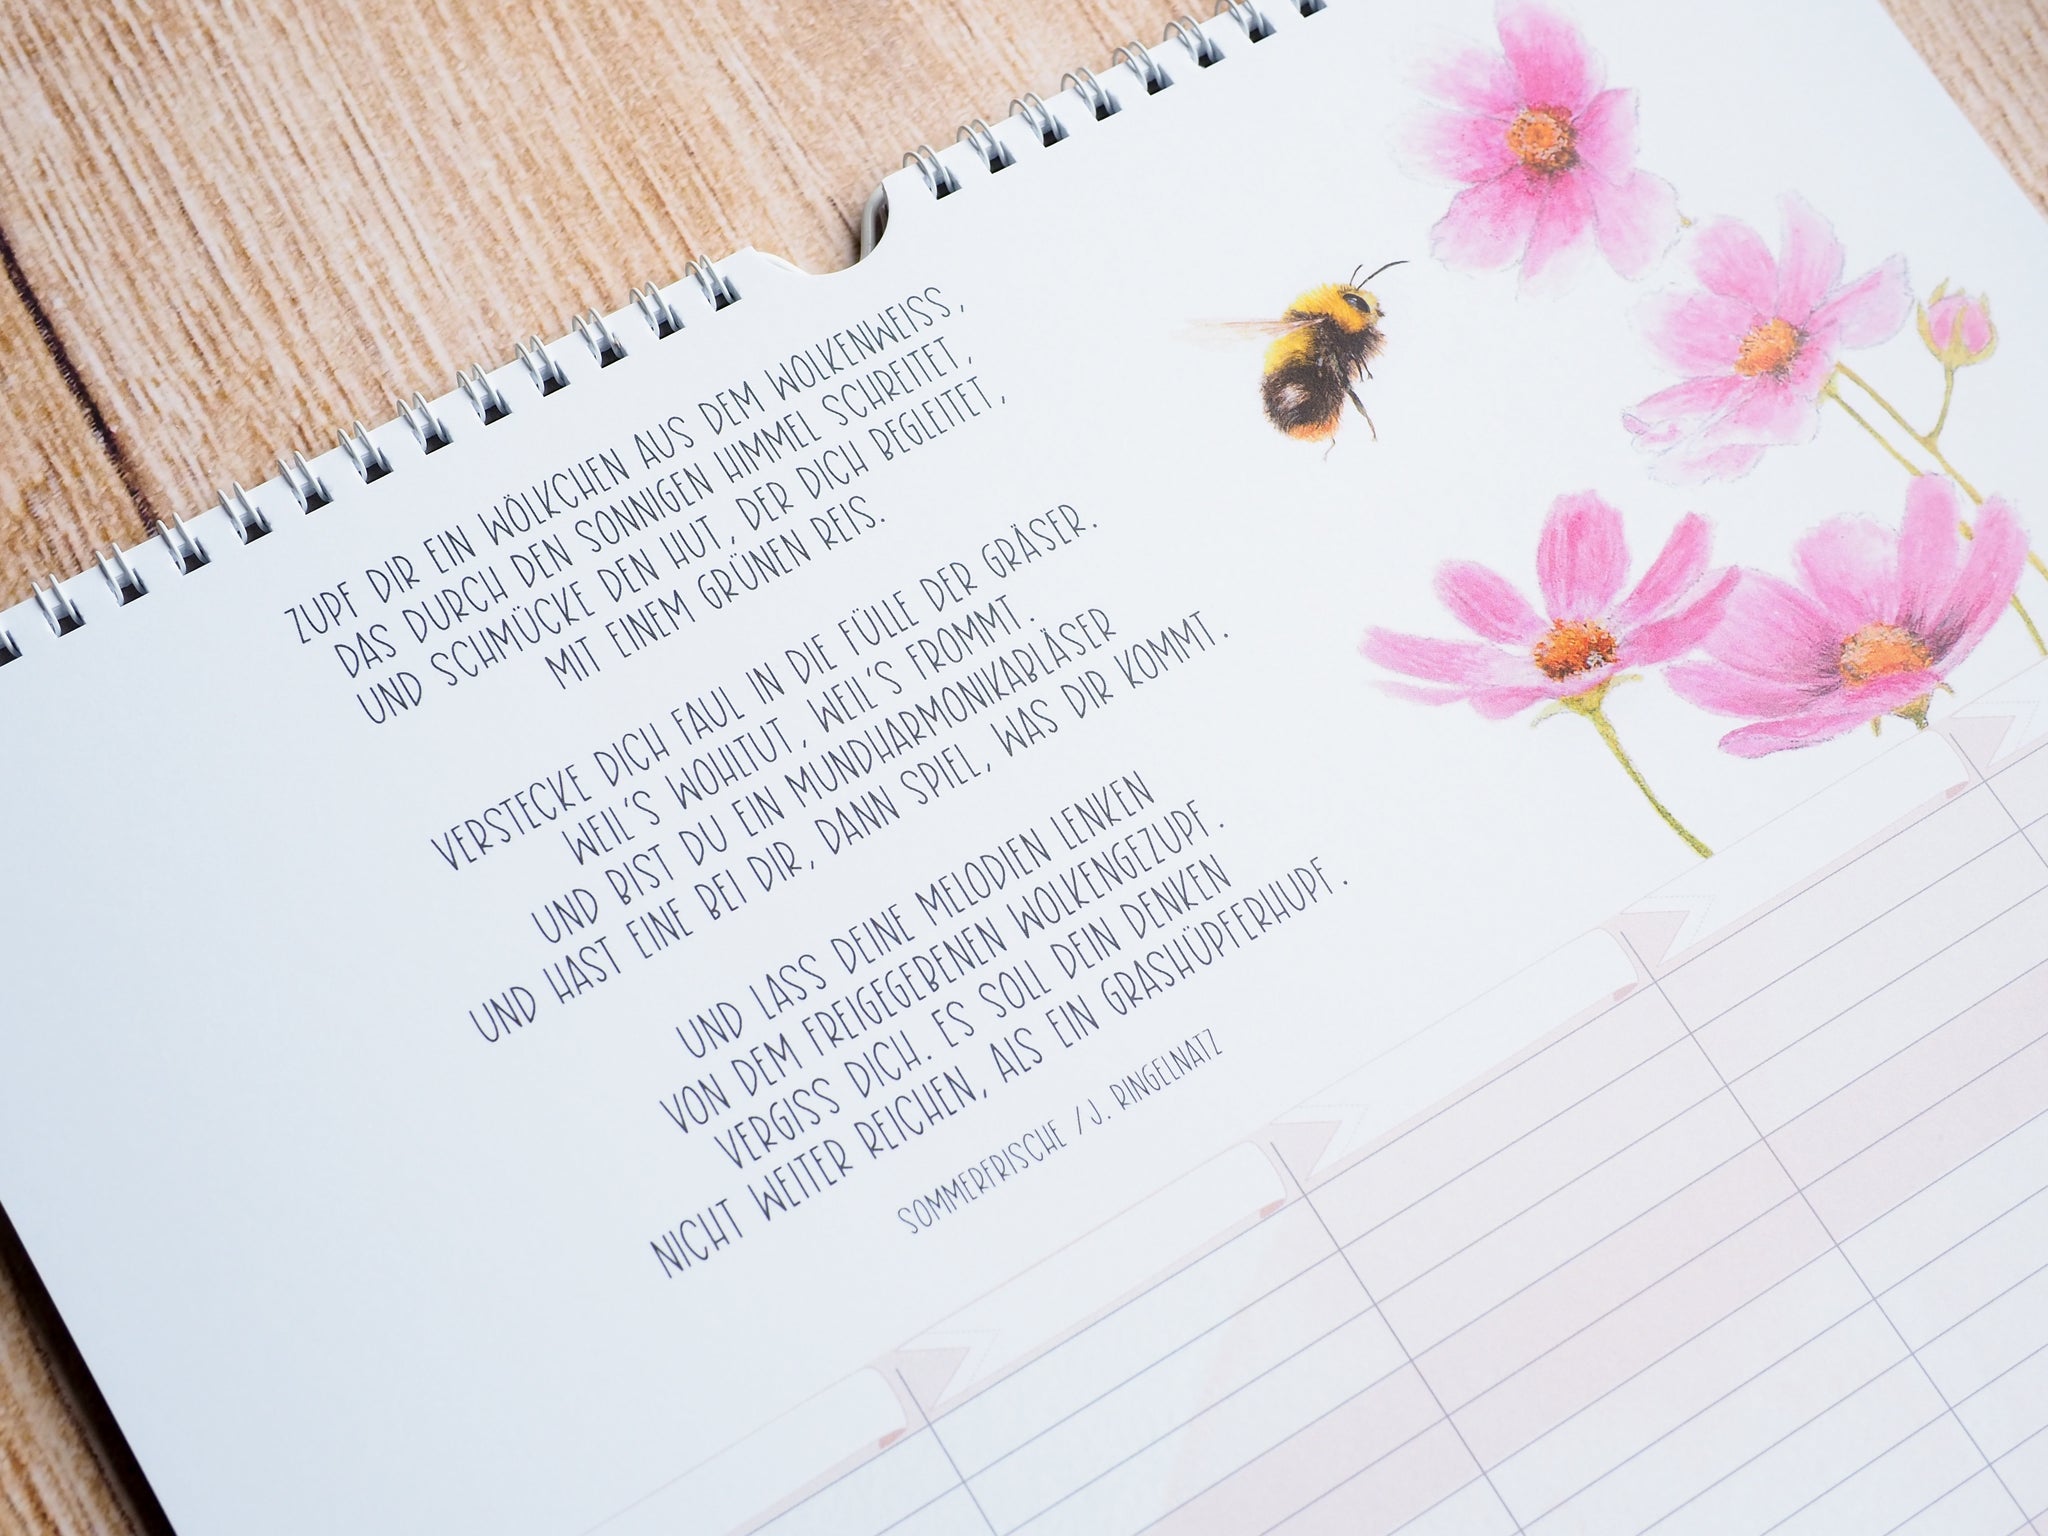 ZUPF DIR EIN WÖLKCHEN AUS DEM WOLKENWEISS,
DAS DURCH DEN SONNIGEN HIMMEL SCHREITET,
UND SCHMÜCKE DEN HUT, DER DICH BEGLEITET,
MIT EINEM GRÜNEN REIS.
VERSTECKE DICH FAUL IN DIE FÜLLE DER GRÄSER.
WEIL'S WOHLTUT, WEIL'S FROMMT.
UND BIST DU EIN MUNDHARMONIKABLÄSER
UND HAST EINE BEI DIR, DANN SPIEL, WAS DIR KOMMT.
UND LASS DEINE MELODIEN LENKEN
VON DEM FREIGEGEBENEN WOLKENGEZUPF.
VERGISS DICH. ES SOLL DEIN DENKEN
NICHT WEITER REICHEN, ALS EIN GRASHÜPFERHUPF.
SOMMERFRISCHE / J. RINGELNATZ